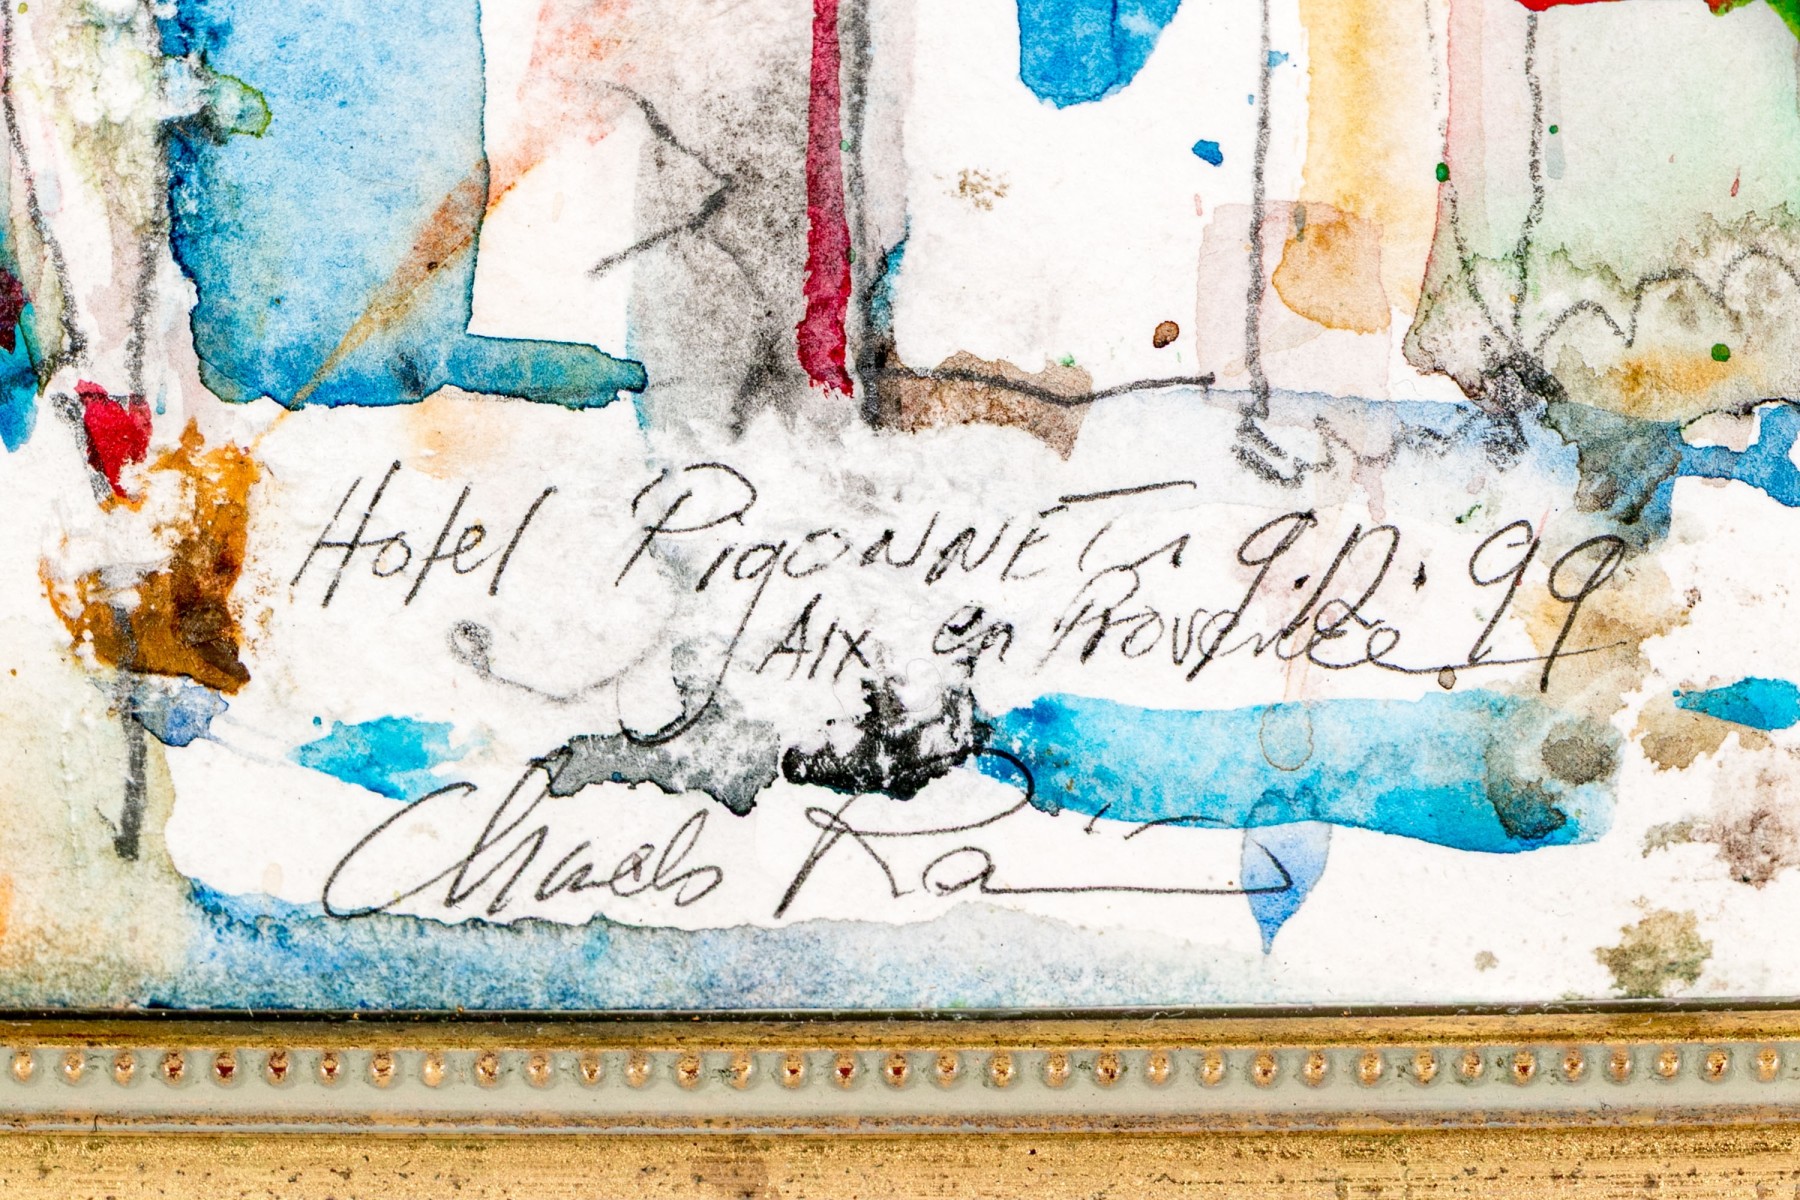 Hotel PigonNET 9.12.99
Aix en Provence
Charles